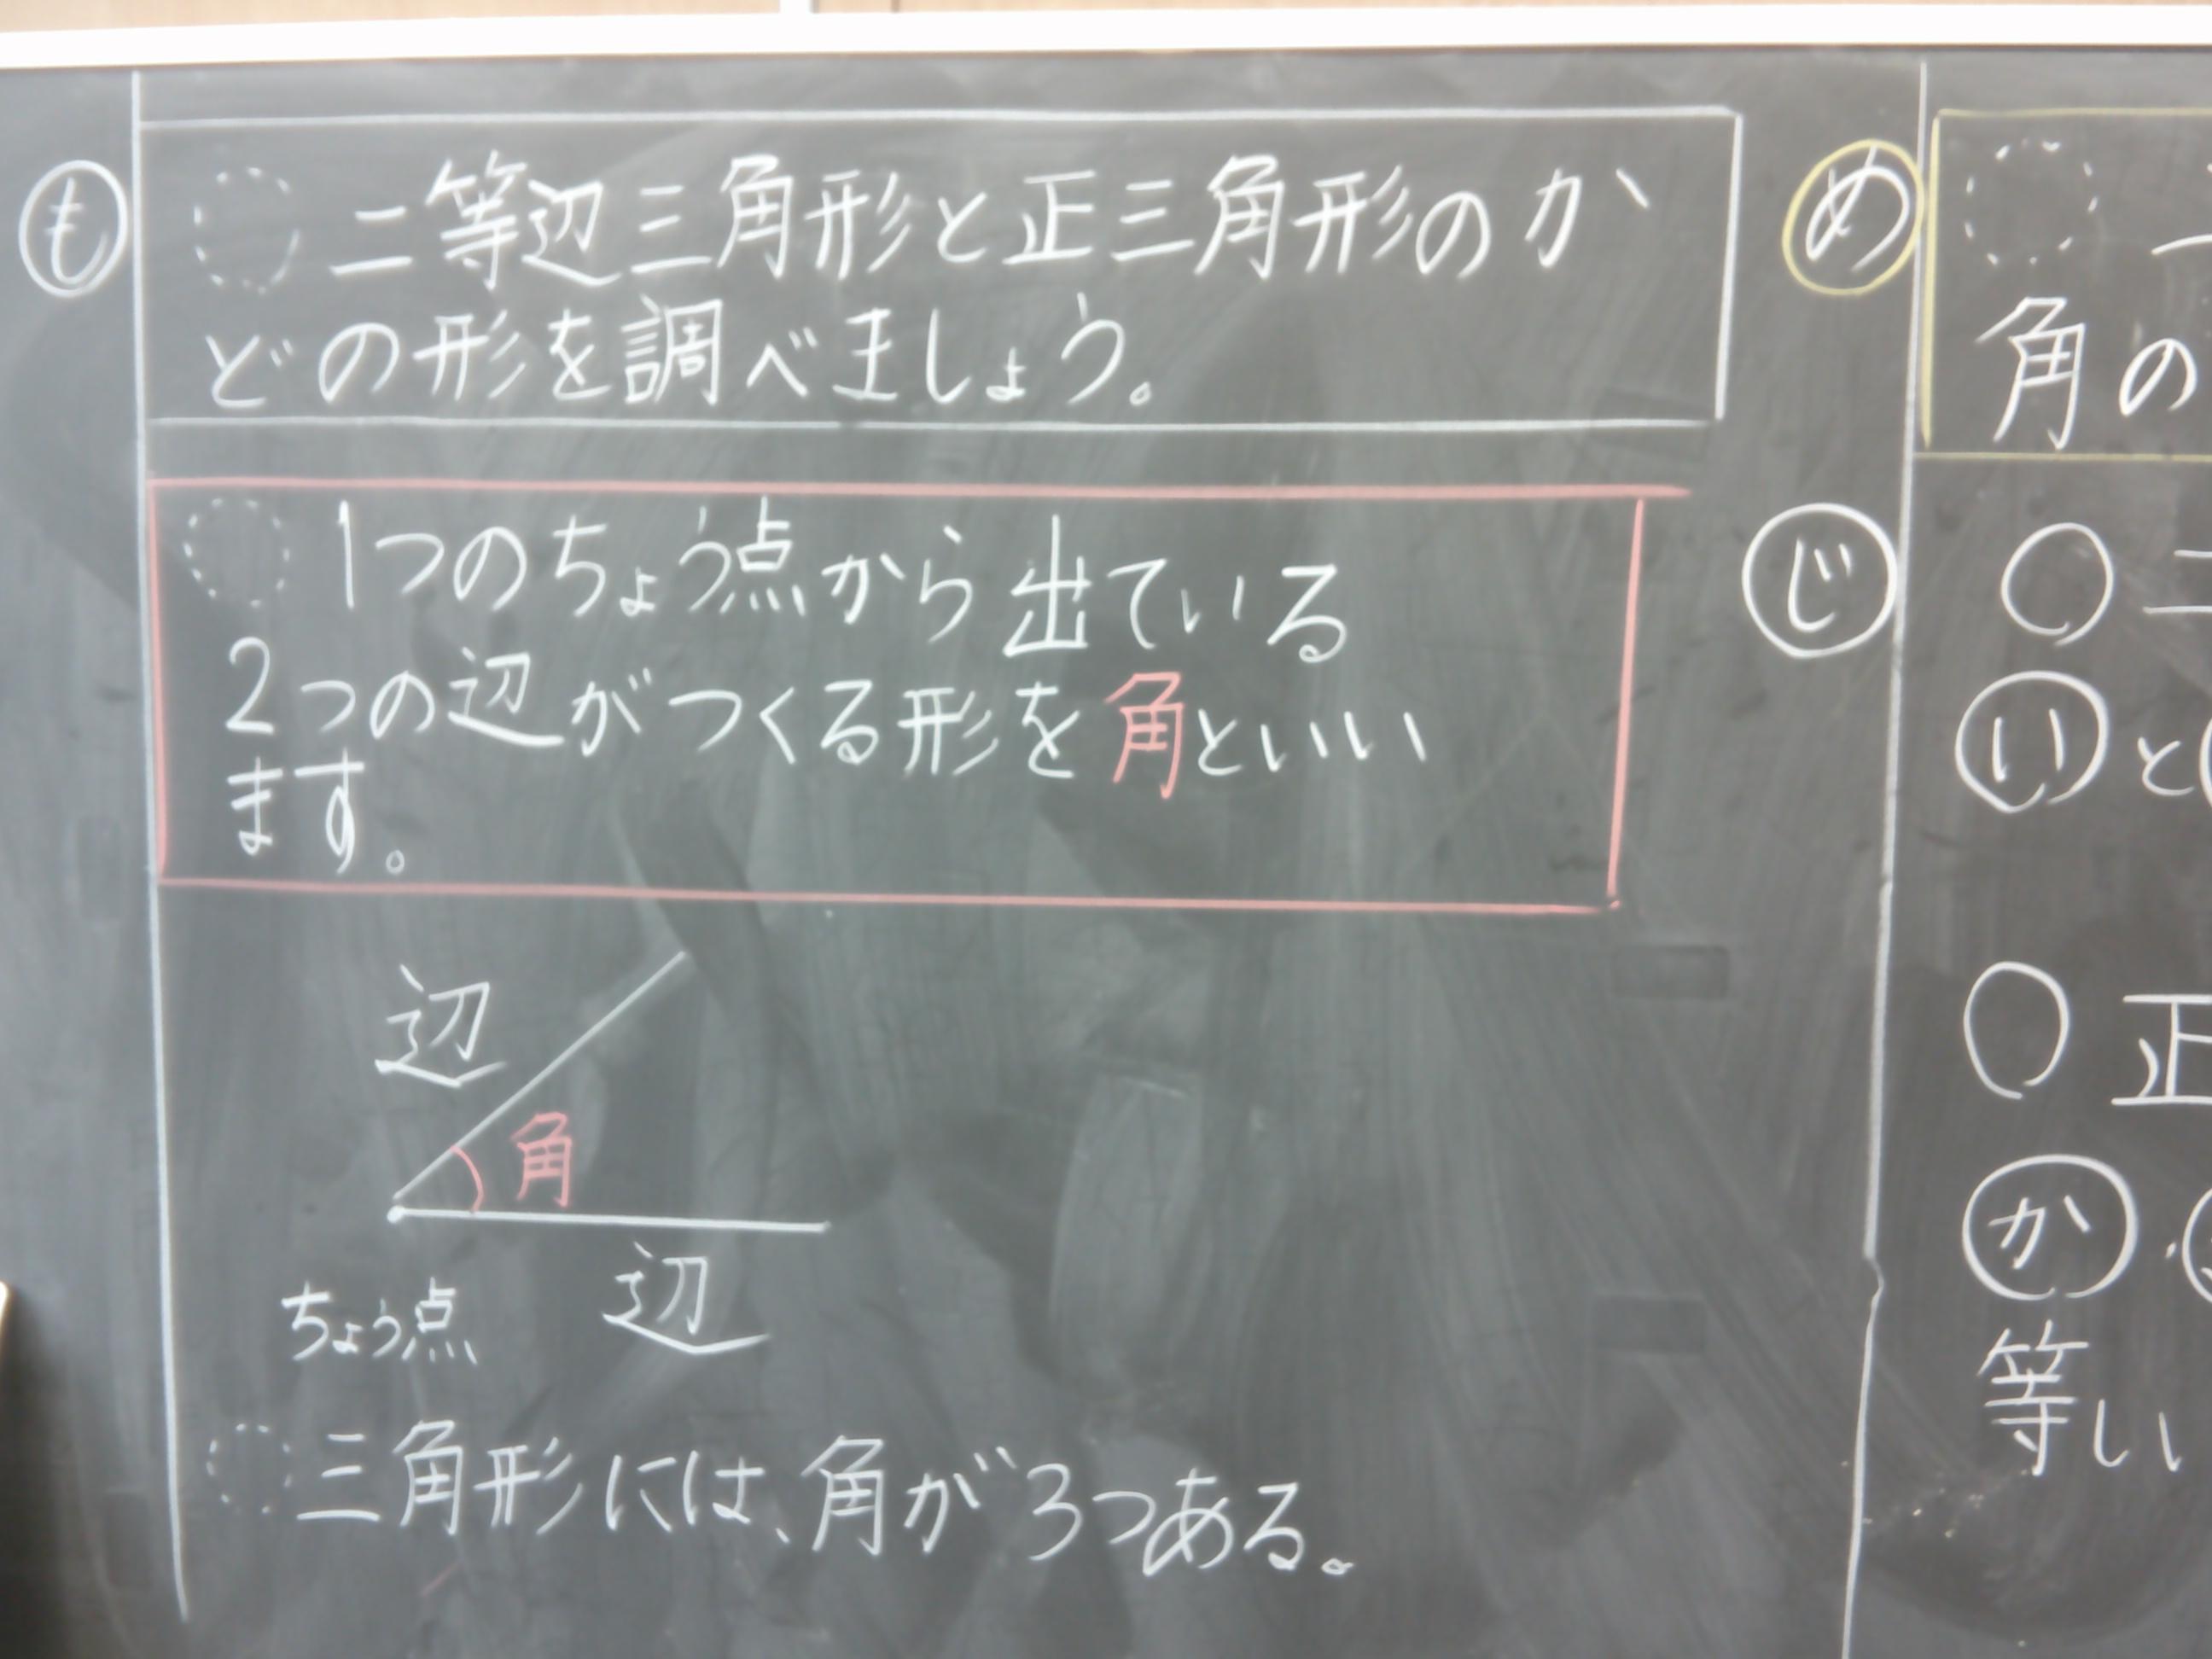 も
二等辺三角形と正三角形のか
どの形を調べましょう。
1つのちょう点から出ている
2つの辺がつくる形を角といい
ます。
辺
角
辺
ちょう点
三角形には、角が3つある。
め
角の
じ
○二
いと
○正
か・
等しい